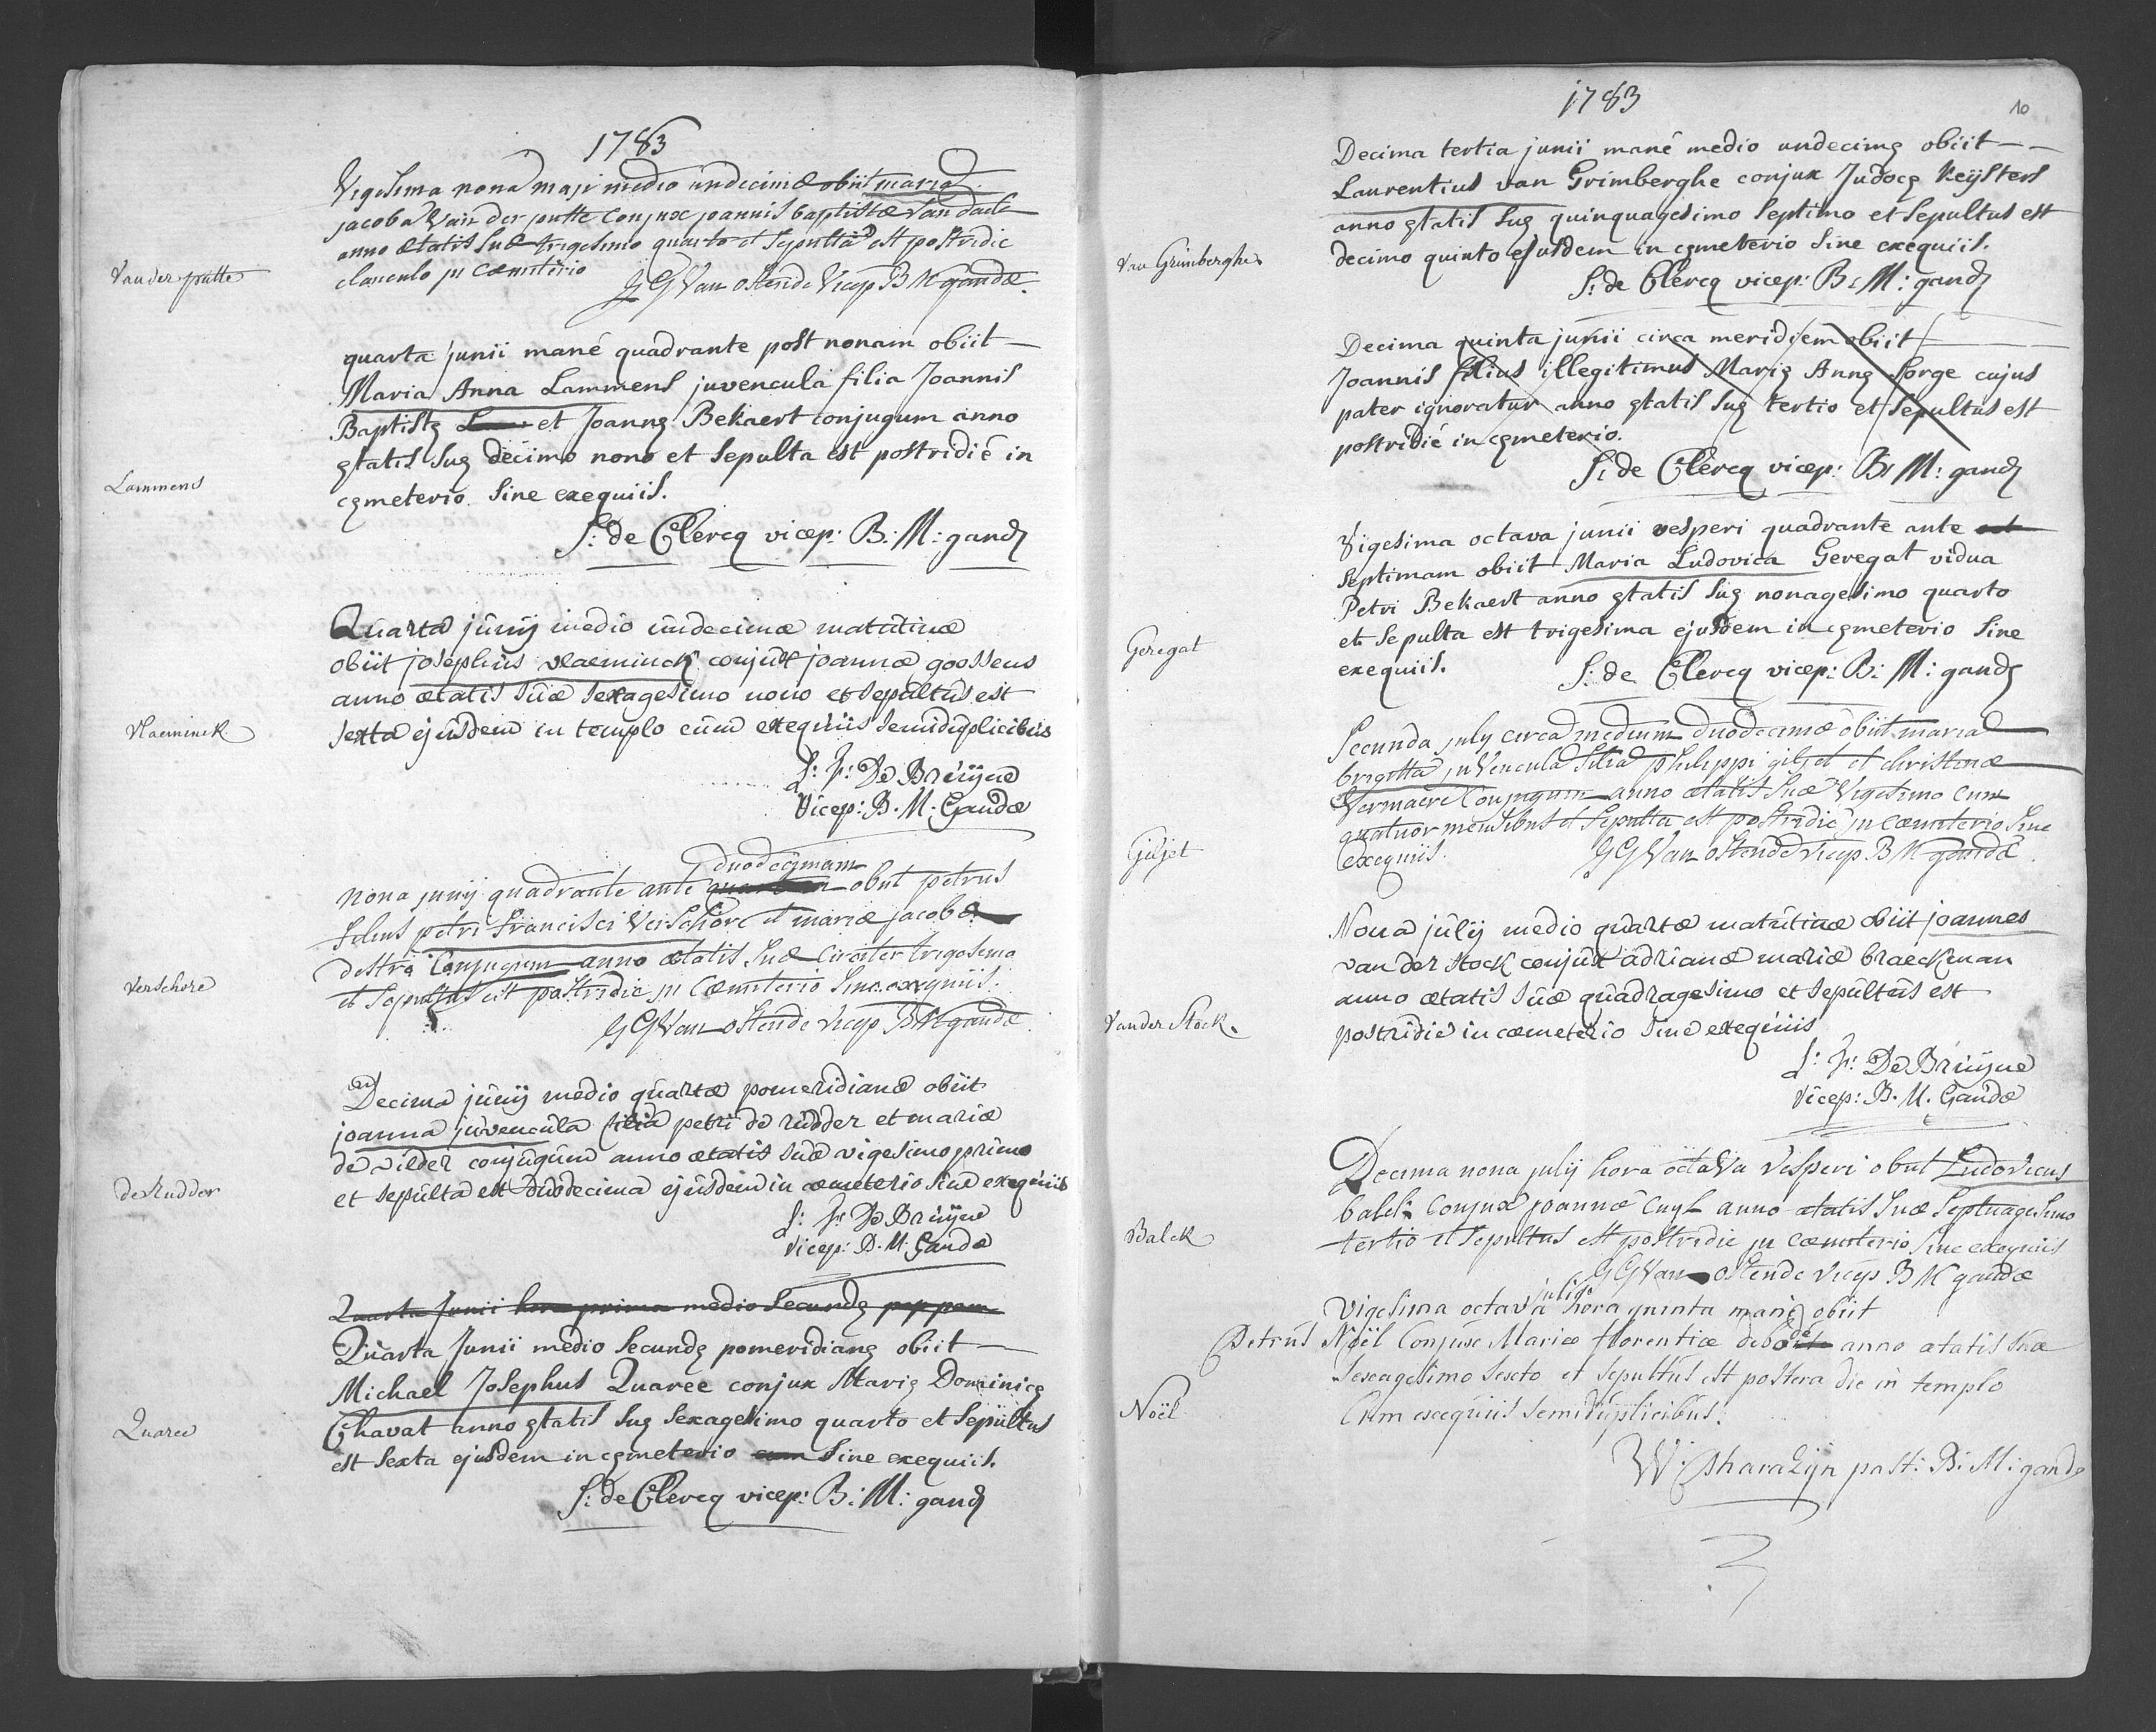 1783
Vigesima nona maji medio undecimæ obiit maria
jacoba Van der putte conjux joannis baptistæ Van
anno ætatis suæ trigesimo quarto et sepulta est postridie
clanculo in cæmiterio
Van der putte
G G Van Ostende Vicep B M gandæ
quarta junii mané quadrante post nonam obiit
Maria Anna Lammens juvencula filia Joannis
Baptistę et Joannę Bekaert conjugum anno
ętatis suę decimo nono et sepulta est postridié in
cęmeterio sine exequiis.
Lammens
S: de Clercq vicep: B: M: gandę
Quarta junij medio undecimæ matutinæ
obiit josephus vlaeminck conjux joannæ goossens
anno ætatis suæ sexagesimo nono et sepultus est
sexta ejusdem in templo cum exequiis semiduplicibus
Vlaeminck
S: F: De Bruijne
Vicep: B. M. Gandæ
duodecimam
nona junij quadrante ante obiit petrus
filius petri Francisci Verschore et mariæ jacobæ
destré Conjugum anno ætatis suæ circiter trigesimo
et sepultus est postridie in Cæmiterio sine exequiis.
Verschore
G G Van Ostende vicep B M gandæ
Decima junij medio quartæ pomeridianæ obiit
joanna juvencula filia petri de rudder et mariæ
de vilder conjugum anno ætatis suæ vigesimo primo
et sepulta est duodecima ejusdem in cæmeterio sine exequiis
de Rudder
S: F: De Bruijne
Vicep: B. M. Gandæ
Quarta Junii hora prima medio secundę
Quarta Junii medio secundę pomeridianę obiit
Michael Josephus Quaree conjux Marię Dominicę
Chavat anno ętatis suę sexagesimo quarto et sepultus
est sexta ejusdem in cęmeterio cum sine exequiis.
Quaree
S: de Clercq vicep: B: M: gandę
1783
10
Decima tertia junii mané medio undecimę obiit
Laurentius van Grimberghe conjux Judocę Keijsters
anno ętatis suę quinquagesimo septimo et sepultus est
decimo quinto ejusdem in cęmeterio sine exequiis.
Van Grimberghe
S: de Clercq vicep: B: M: gandę
Decima quinta junii circa meridiem obiit
Joannis filius illegitimus Marię Annę Sorge cujus
pater ignoratur anno ętatis suę tertio et sepultus est
postridié in cęmeterio.
S: de Clercq vicep: B: M: gandę
Vigesima octava junii vesperi quadrante ante
septimam obiit Maria Ludovica Geregat vidua
Petri Bekaert anno ętatis suę nonagesimo quarto
et sepulta est trigesima ejusdem in cęmeterio sine
exequiis.
Geregat
S: de Clercq vicep: B: M: gandę
Secunda july circa medium duodecimæ obiit maria
brigitta juvencula filia philippi giljet et christinæ
Vermaere Conjugum anno ætatis suæ Vigesimo cum
quatuor mensibus et sepulta est postridie in cæmiterio sine
exequiis.
Giljet
G G Van Ostende vicep B M gandæ
Nona julij medio quartæ matutinæ obiit joannes
van der stock conjux adrianæ mariæ braeckman
anno ætatis suæ quadragesimo et sepultus est
postridie in cæmeterio sine exequiis
Van der Stock.
S: F: De Bruijne
Vicep: B. M. Gandæ
Decima nona julij hora octava Vesperi obiit Ludovicus
balck Conjux joannæ Cuyl anno ætatis suæ septuagesimo
tertio et sepultus est postridie in cæmiterio sine exequiis
Balck
G G Van Ostende vicep B M gandæ
julii
Vigesima octava hora quinta mane obiit
Petrus Noël Conjux Mariæ florentiæ anno ætatis suæ
sexagesimo sexto et sepultus est postera die in templo
Cum exequiis semiduplicibus.
Noël
W: Dharazijn past: B: M: gandæ